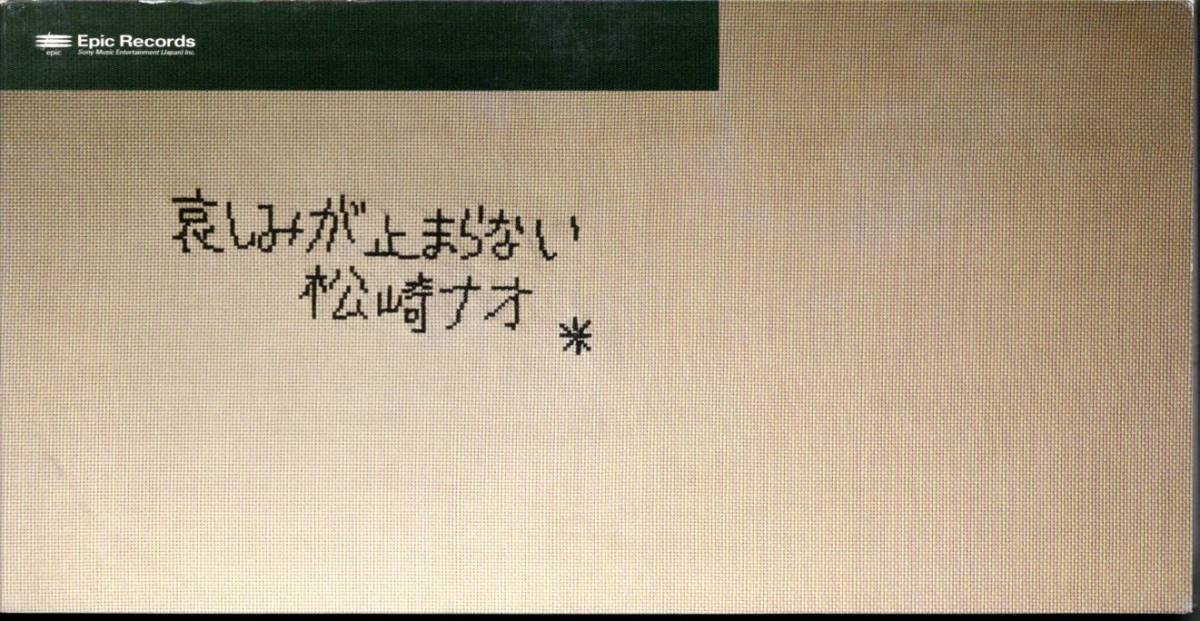 Epic Records
epic
Sony Music Entertainment (Japan) Inc.
哀しみが止まらない
松崎ナオ
*